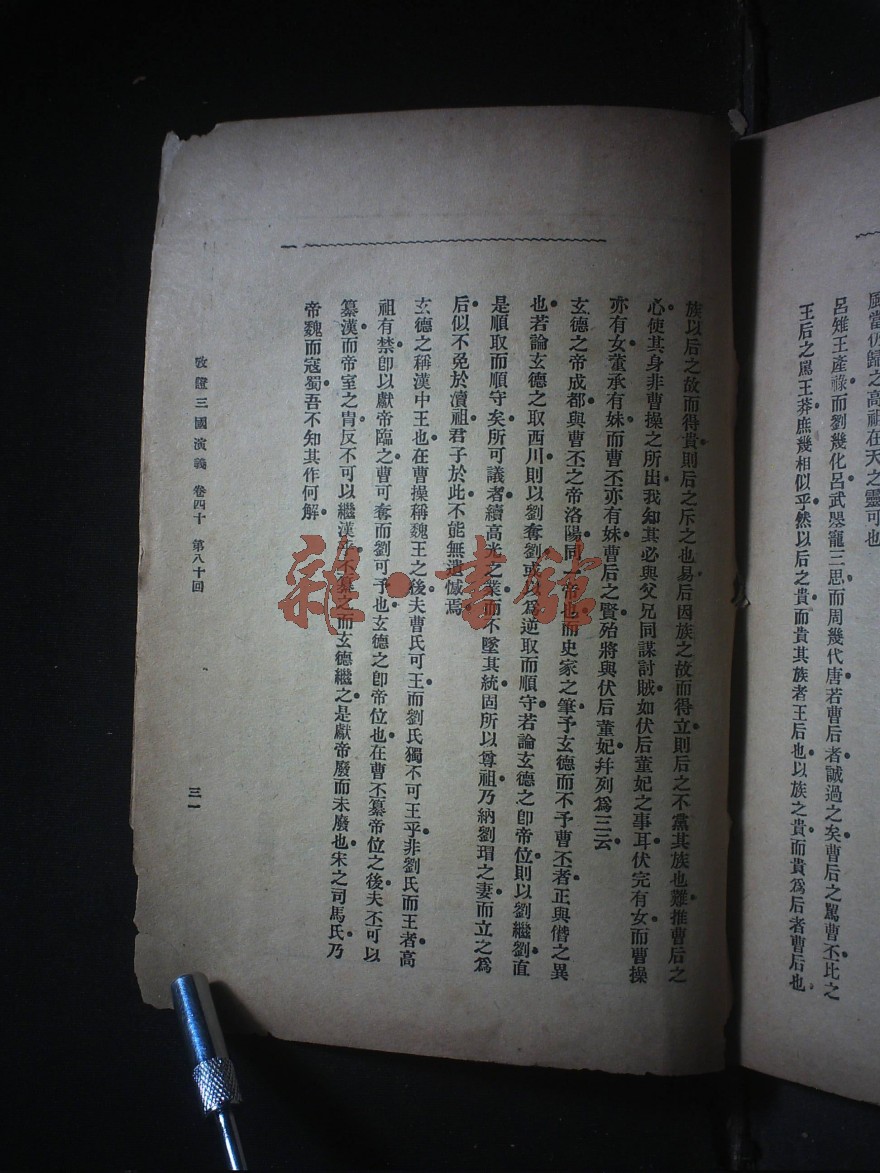 風當仍歸之高祖在天之靈可也
呂雉王產祿而劉幾化呂武曌寵三思而周幾代唐若曹后者誠過之矣曹后之罵曹丕比之
王后之罵王莽庶幾相似乎然以后之貴而貴其族者王后也以族之貴而貴爲后者曹后也
族以后之故而得貴則后之斥之也易后因族之故而得立則后之不黨其族也難推曹后之
心使其身非曹操之所出我知其必與父兄同謀討賊如伏后董妃之事耳伏完有女而曹操
亦有女董承有妹而曹丕亦有妹曹后之賢殆將與伏后董妃幷列爲三云
玄德之帝成都與曹丕之帝洛陽同一帝也而史家之筆予玄德而不予曹丕者正與僭之異
也若論玄德之取西川則以劉奪劉或以爲逆取而順守若論玄德之卽帝位則以劉繼劉直
是順取而順守矣所可議者續高光之業而不墜其統固所以尊祖乃納劉瑁之妻而立之爲
后似不免於瀆祖君子於此不能無遺憾焉
玄德之稱漢中王也在曹操稱魏王之後夫曹氏可王而劉氏獨不可王乎非劉氏而王者高
祖有禁卽以獻帝臨之曹可奪而劉可予也玄德之卽帝位也在曹丕篡帝位之後夫丕可以
篡漢而帝室之胄反不可以繼漢乎丕篡之而玄德繼之是獻帝廢而未廢也宋之司馬氏乃
帝魏而寇蜀吾不知其作何解
攷證三國演義 卷四十 第八十回
三一
雜·書館